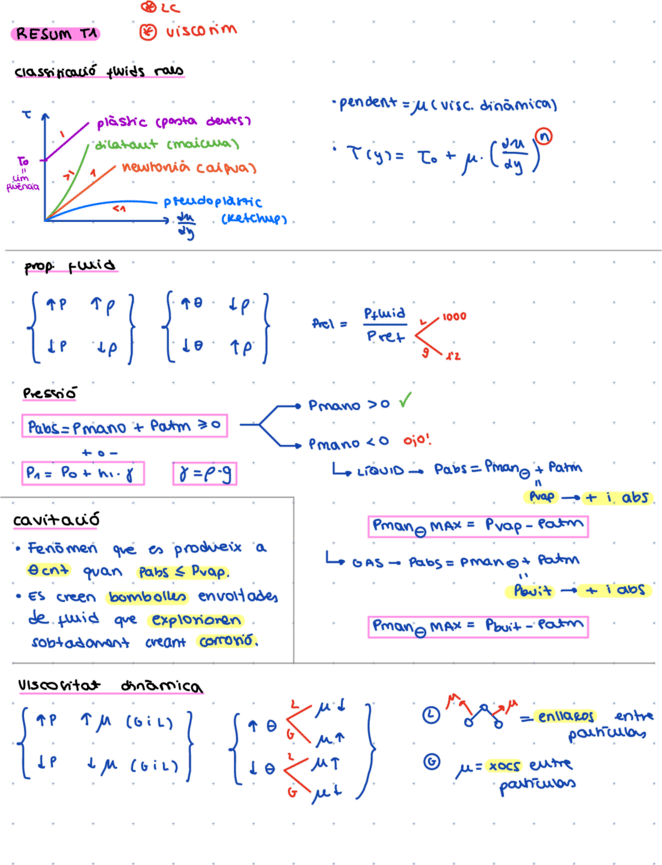 ⊛ LC
RESUM T1 ⊛ viscosim
classificació fluids reals
τ
plàstic (pasta dents)
dilatant (maicena)
newtonià (aigua)
pseudoplàstic (ketchup)
1
>1
1
<1
τ₀
=
lím
fluència
du/dy
· pendent = μ (visc. dinàmica)
· τ(y) = τ₀ + μ · (du/dy)ⁿ
prop. fluid
↑P ↑ρ
↓P ↓ρ
↑θ ↓ρ
↓θ ↑ρ
ρrel = ρfluid / ρref
L 1000
g 1'2
Pressió
Pabs = Pmano + Patm ≥ 0
+ o -
P₁ = P₀ + h₁ · γ
γ = ρ · g
Pmano > 0 ✓
Pmano < 0 ojo!
LÍQUID → Pabs = Pman⊖ + Patm
"
Pvap → + i. abs
Pman⊖ MAX = Pvap - Patm
GAS → Pabs = Pman⊖ + Patm
"
Pbuit → + i abs
Pman⊖ MAX = Pbuit - Patm
cavitació
• Fenòmen que es produeix a
θ cnt quan Pabs ≤ Pvap.
• Es creen bombolles envoltades
de fluid que exploisonen
sobtadament creant corrosió.
Viscositat dinàmica
↑P ↑μ (G i L)
↓P ↓μ (G i L)
↑θ L μ↓
G μ↑
↓θ L μ↑
G μ↓
Ⓛ μ μ = enllaços entre
partícules
Ⓖ μ = xocs entre
partícules